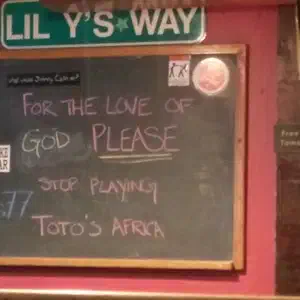 LIL Y'S★WAY
FOR THE LOVE OF
GOD PLEASE
STOP PLAYING
TOTO'S AFRICA
77
Free